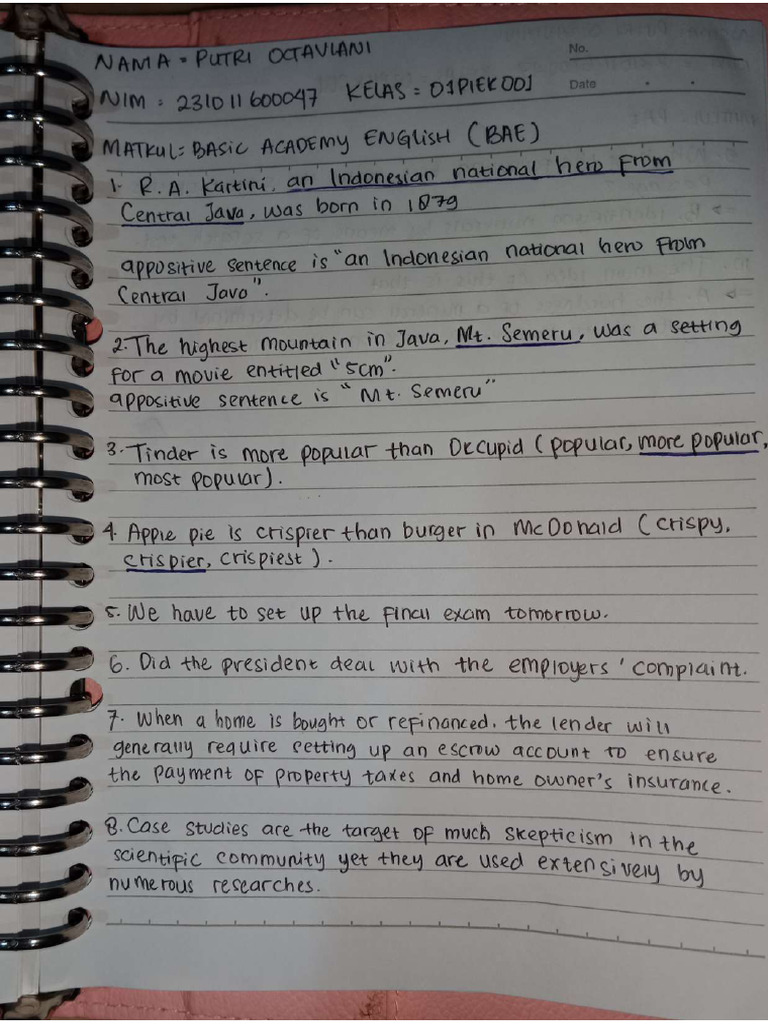 NAMA = PUTRI OCTAVIANI
No.
NIM = 231011600047 KELAS = 01PIEK001
Date
MATKUL = BASIC ACADEMY ENGLISH (BAE)
1. R.A. Kartini, an Indonesian national hero from
Central Java, was born in 1879
appositive sentence is "an Indonesian national hero from
Central Java".
2. The highest mountain in Java, Mt. Semeru, was a setting
for a movie entitled "5cm".
appositive sentence is "Mt. Semeru"
3. Tinder is more popular than Okcupid (popular, more popular,
most popular).
4. Apple pie is crispier than burger in McDonald (crispy,
crispier, crispiest).
5. We have to set up the final exam tomorrow.
6. Did the president deal with the employers' complaint.
7. When a home is bought or refinanced, the lender will
generally require setting up an escrow account to ensure
the payment of property taxes and home owner's insurance.
8. Case studies are the target of much skepticism in the
scientific community yet they are used extensively by
numerous researches.